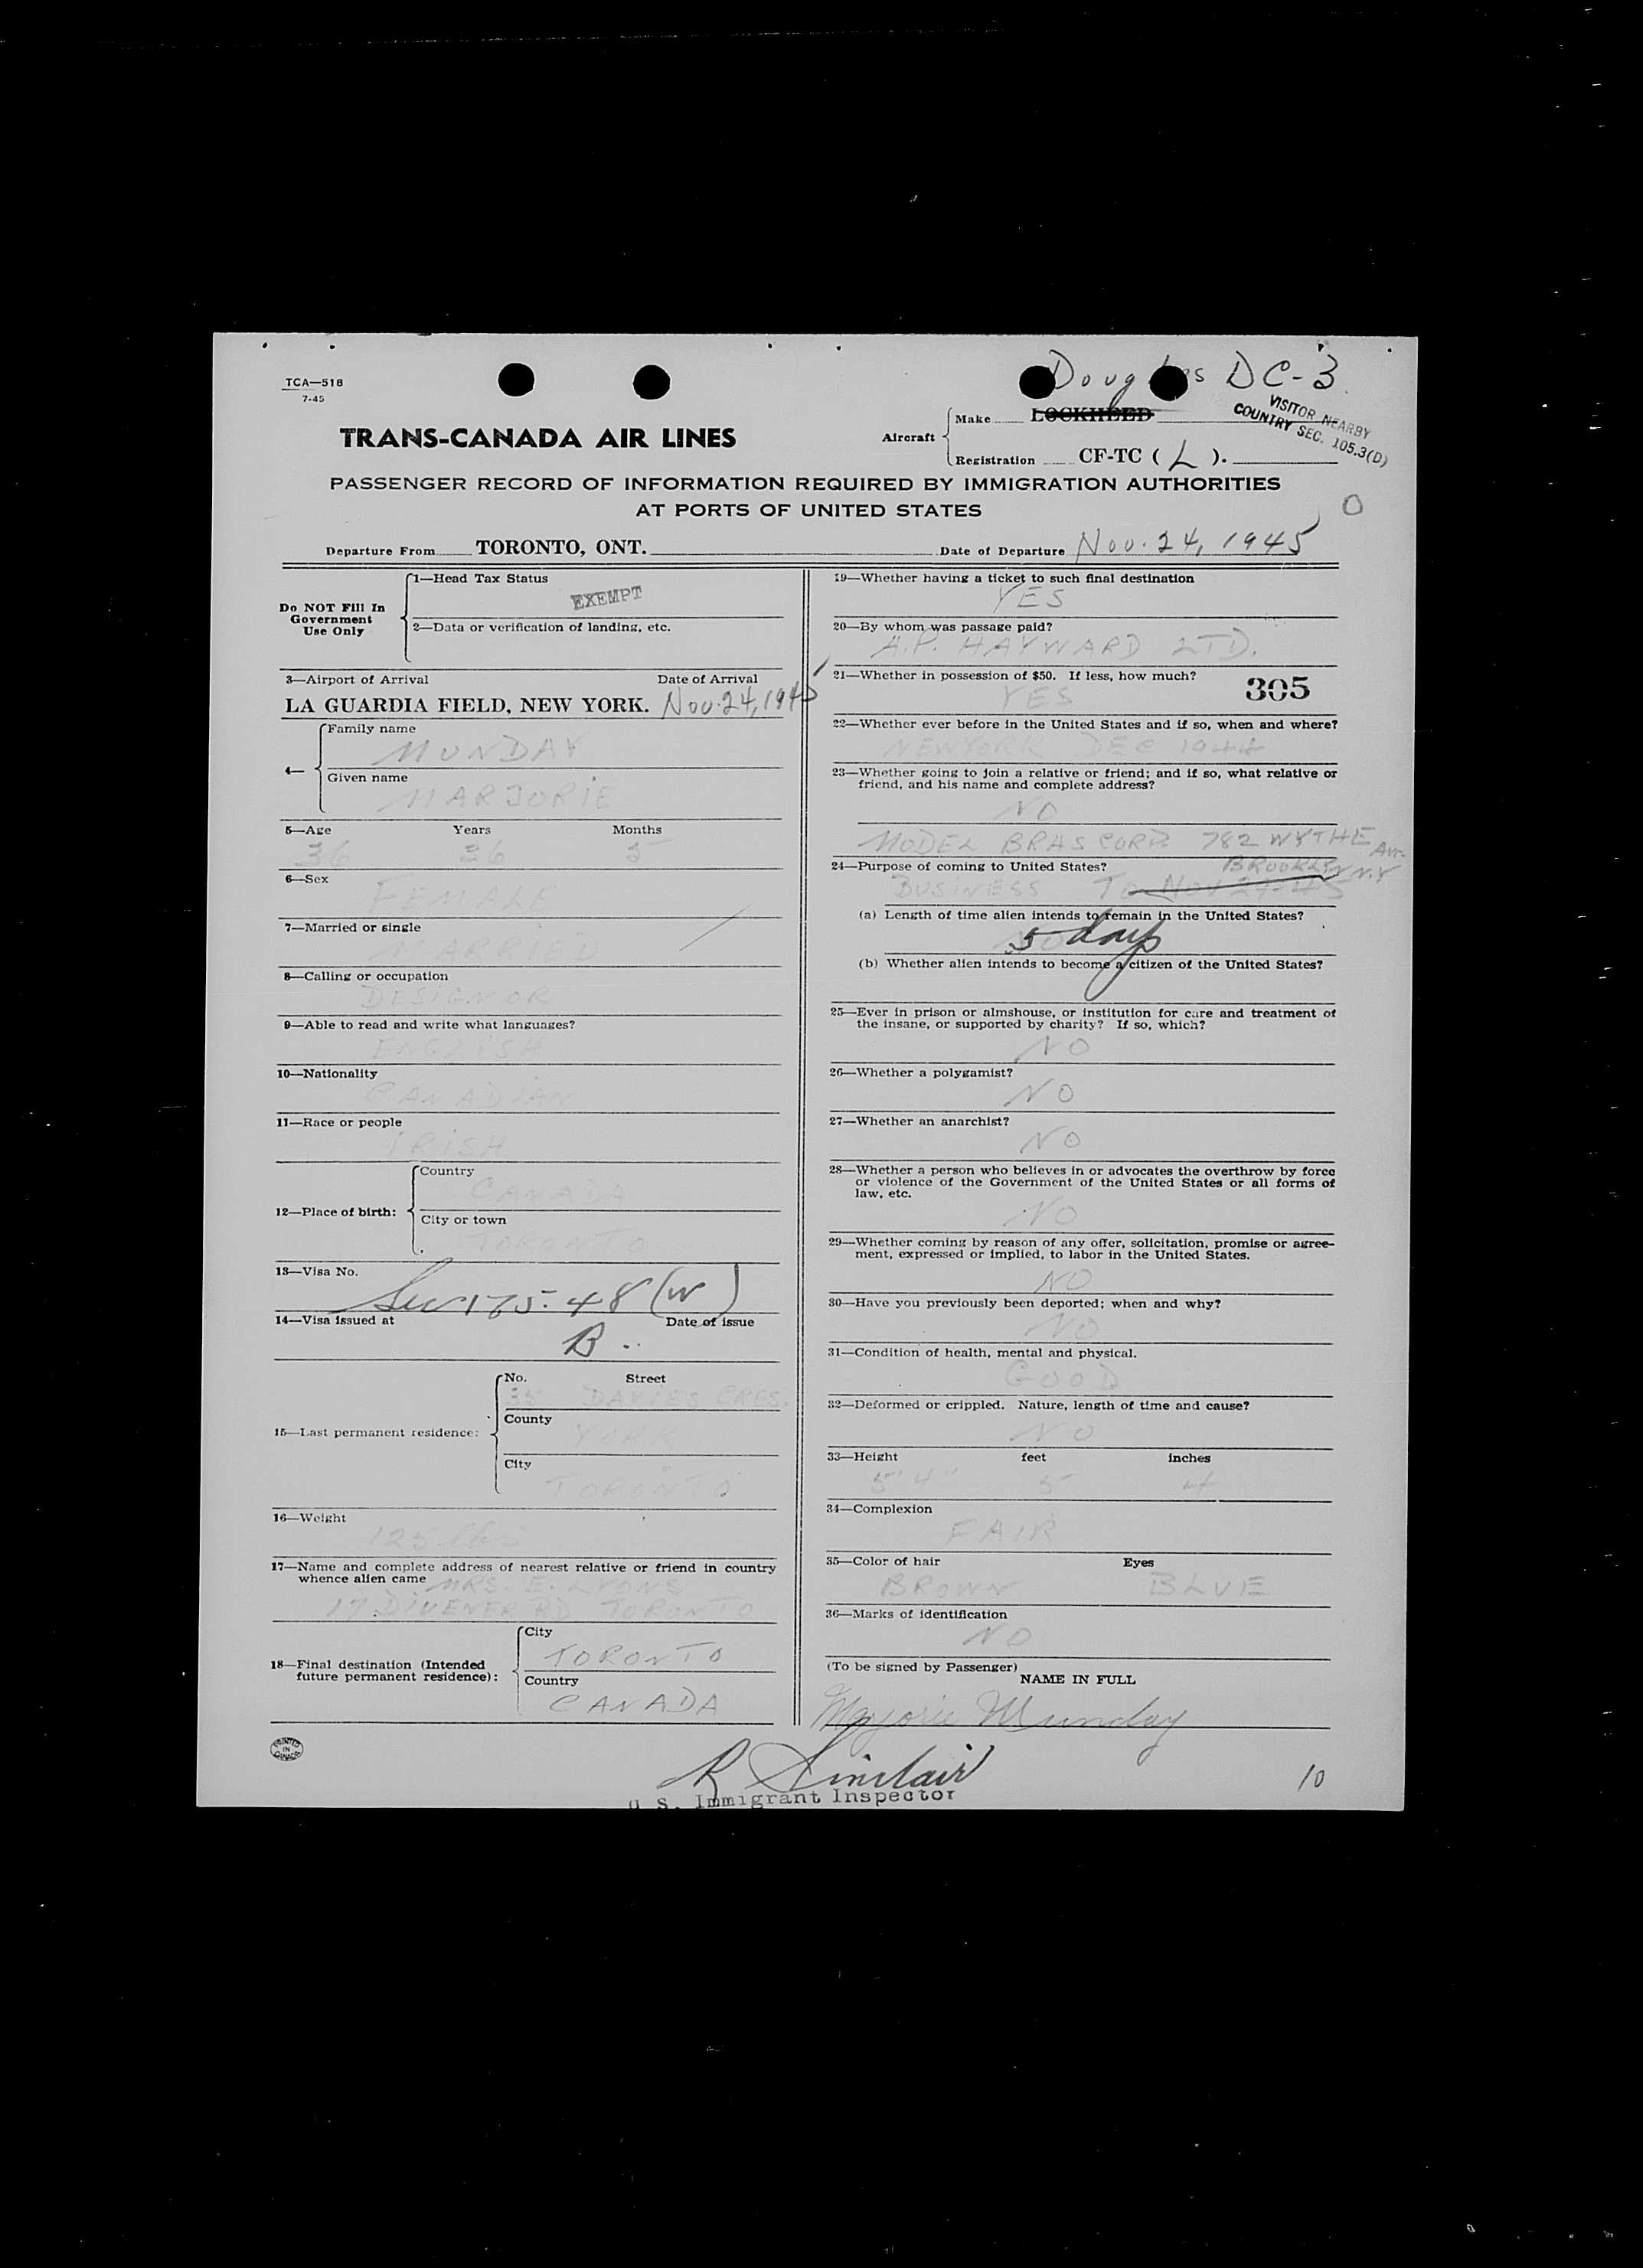 TCA—518
7-45
Douglas DC-3
TRANS-CANADA AIR LINES
Aircraft
Make LOCKHEED
Registration CF-TC ( L ).
VISITOR NEARBY
COUNTRY SEC. 105.3(D)
PASSENGER RECORD OF INFORMATION REQUIRED BY IMMIGRATION AUTHORITIES
AT PORTS OF UNITED STATES
Departure From TORONTO, ONT. Date of Departure Nov. 24, 1945
Do NOT Fill In
Government
Use Only
1—Head Tax Status
EXEMPT
2—Data or verification of landing, etc.
3—Airport of Arrival Date of Arrival
LA GUARDIA FIELD, NEW YORK. Nov. 24, 1945
4—
Family name
MUNDAY
Given name
MARJORIE
5—Age Years Months
36 36 5
6—Sex
FEMALE
7—Married or single
MARRIED
8—Calling or occupation
DESIGNOR
9—Able to read and write what languages?
ENGLISH
10—Nationality
CANADIAN
11—Race or people
IRISH
12—Place of birth:
Country
CANADA
City or town
TORONTO
13—Visa No.
Sec 175.48 (W)
14—Visa issued at Date of issue
B
15—Last permanent residence:
No. Street
35 DAVIES CRES.
County
YORK
City
TORONTO
16—Weight
125 lbs
17—Name and complete address of nearest relative or friend in country
whence alien came MRS. E. LYONS
17 RD TORONTO
18—Final destination (Intended
future permanent residence):
City
TORONTO
Country
CANADA
PRINTED
IN
CANADA
19—Whether having a ticket to such final destination
YES
20—By whom was passage paid?
A.P. HAYWARD LTD.
21—Whether in possession of $50. If less, how much?
YES
305
22—Whether ever before in the United States and if so, when and where?
NEW YORK DEC 1944
23—Whether going to join a relative or friend; and if so, what relative or
friend, and his name and complete address?
NO
MODEL BRAS CORP. 782 WYTHE Ave.
BROOKLYN N.Y
24—Purpose of coming to United States?
BUSINESS To Nov 29-45
(a) Length of time alien intends to remain in the United States?
5 days
(b) Whether alien intends to become a citizen of the United States?
25—Ever in prison or almshouse, or institution for care and treatment of
the insane, or supported by charity? If so, which?
NO
26—Whether a polygamist?
NO
27—Whether an anarchist?
NO
28—Whether a person who believes in or advocates the overthrow by force
or violence of the Government of the United States or all forms of
law, etc.
NO
29—Whether coming by reason of any offer, solicitation, promise or agree-
ment, expressed or implied, to labor in the United States.
NO
30—Have you previously been deported; when and why?
NO
31—Condition of health, mental and physical.
GOOD
32—Deformed or crippled. Nature, length of time and cause?
NO
33—Height feet inches
5' 4" 5 4
34—Complexion
FAIR
35—Color of hair Eyes
BROWN BLUE
36—Marks of identification
NO
(To be signed by Passenger)
NAME IN FULL
Marjorie Munday
R Sinclair
U. S. Immigrant Inspector
10